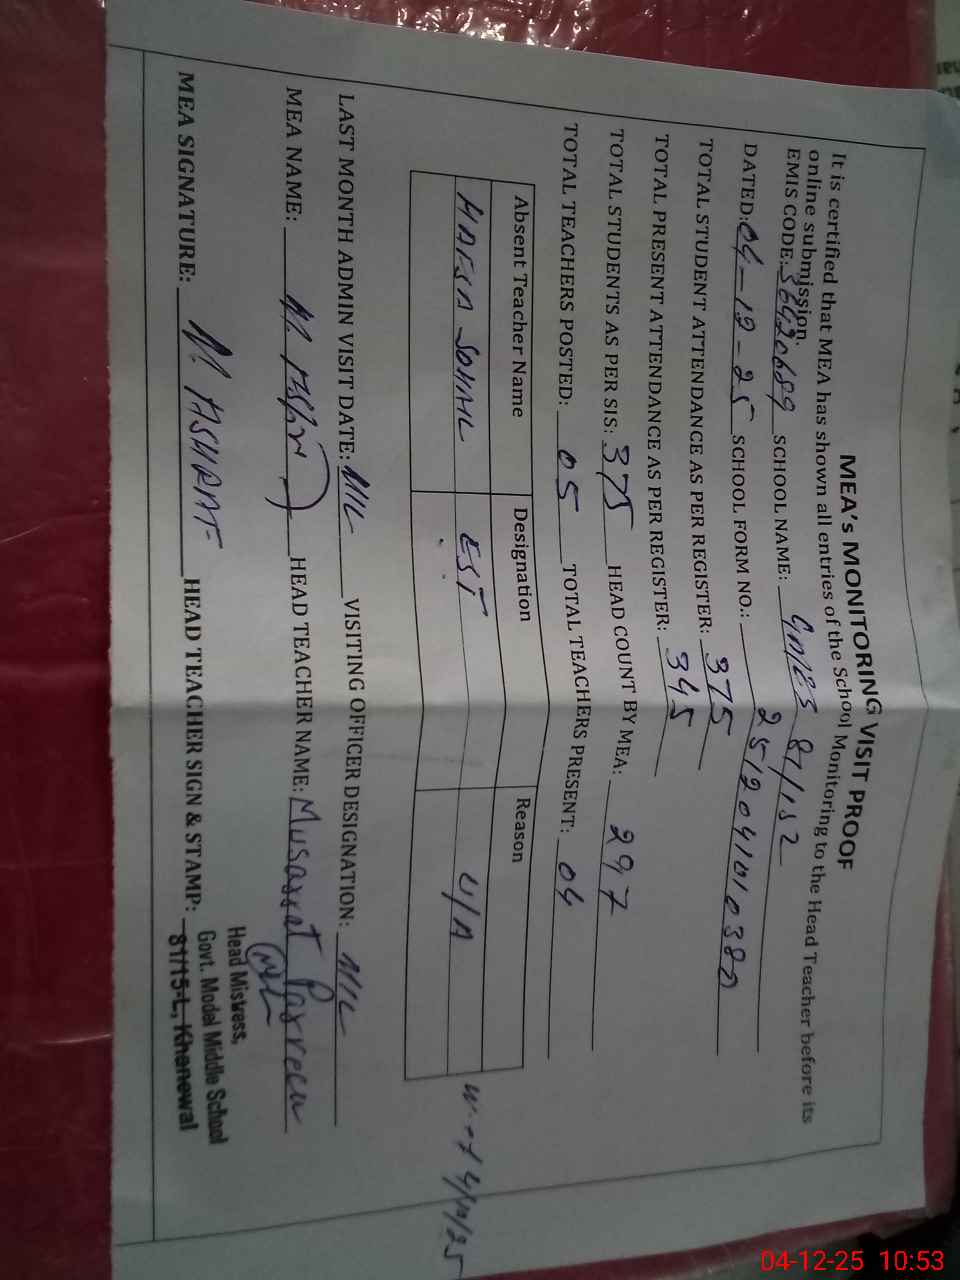 MEA's MONITORING VISIT PROOF
It is certified that MEA has shown all entries of the School Monitoring to the Head Teacher before its
online submission.
EMIS CODE: 36420689 SCHOOL NAME: 81/15L
DATED: 04-12-25 SCHOOL FORM NO.: 2512041010380
TOTAL STUDENT ATTENDANCE AS PER REGISTER: 375
TOTAL PRESENT ATTENDANCE AS PER REGISTER: 345
TOTAL STUDENTS AS PER SIS: 375 HEAD COUNT BY MEA: 297
TOTAL TEACHERS POSTED: 05 TOTAL TEACHERS PRESENT: 04
Absent Teacher Name Designation Reason
HAFSA SOHAIL EST U/A 4/12/25
LAST MONTH ADMIN VISIT DATE: NIL VISITING OFFICER DESIGNATION: NIL
MEA NAME: HEAD TEACHER NAME: Musarrat Parveen
MEA SIGNATURE: M. ASHRAF HEAD TEACHER SIGN & STAMP:
Head Mistress,
Govt. Model Middle School
81/15-L, Khanewal
04-12-25 10:53